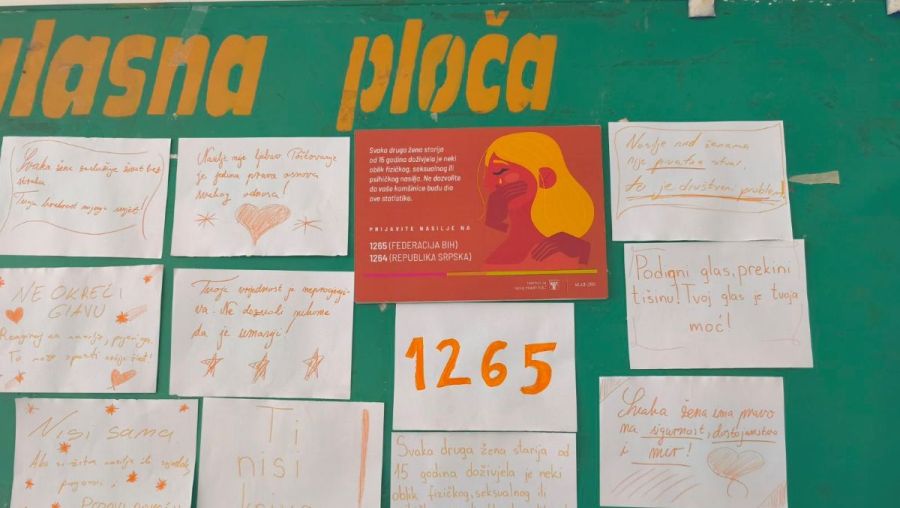 glasna ploča
Svaka žena zaslužuje život bez
straha.
Tvoja hrabrost mijenja svijet!
Nasilje nije ljubav. Poštovanje
je jedina prava osnova
svakog odnosa!
Svaka druga žena starija
od 15 godina doživjela je neki
oblik fizičkog, seksualnog ili
psihičkog nasilja. Ne dozvolite
da vaše komšinice budu dio
ove statistike.
PRIJAVITE NASILJE NA
1265 (FEDERACIJA BIH)
1264 (REPUBLIKA SRPSKA)
Nasilje nad ženama
nije privatna stvar,
to je društveni problem!
NE OKREĆI
GLAVU
Reaguj na nasilje, prijavi ga.
To može spasiti nečije život!
Tvoja vrijednost je neprocjenji-
va. Ne dozvoli nikome
da je umanji!
1265
Podigni glas, prekini
tišinu! Tvoj glas je tvoja
moć!
Nisi sama
Ako
Ti
nisi
Svaka druga žena starija od
15 godina doživjela je neki
oblik fizičkog, seksualnog ili
Svaka žena ima pravo
na sigurnost, dostojanstvo
i mir!